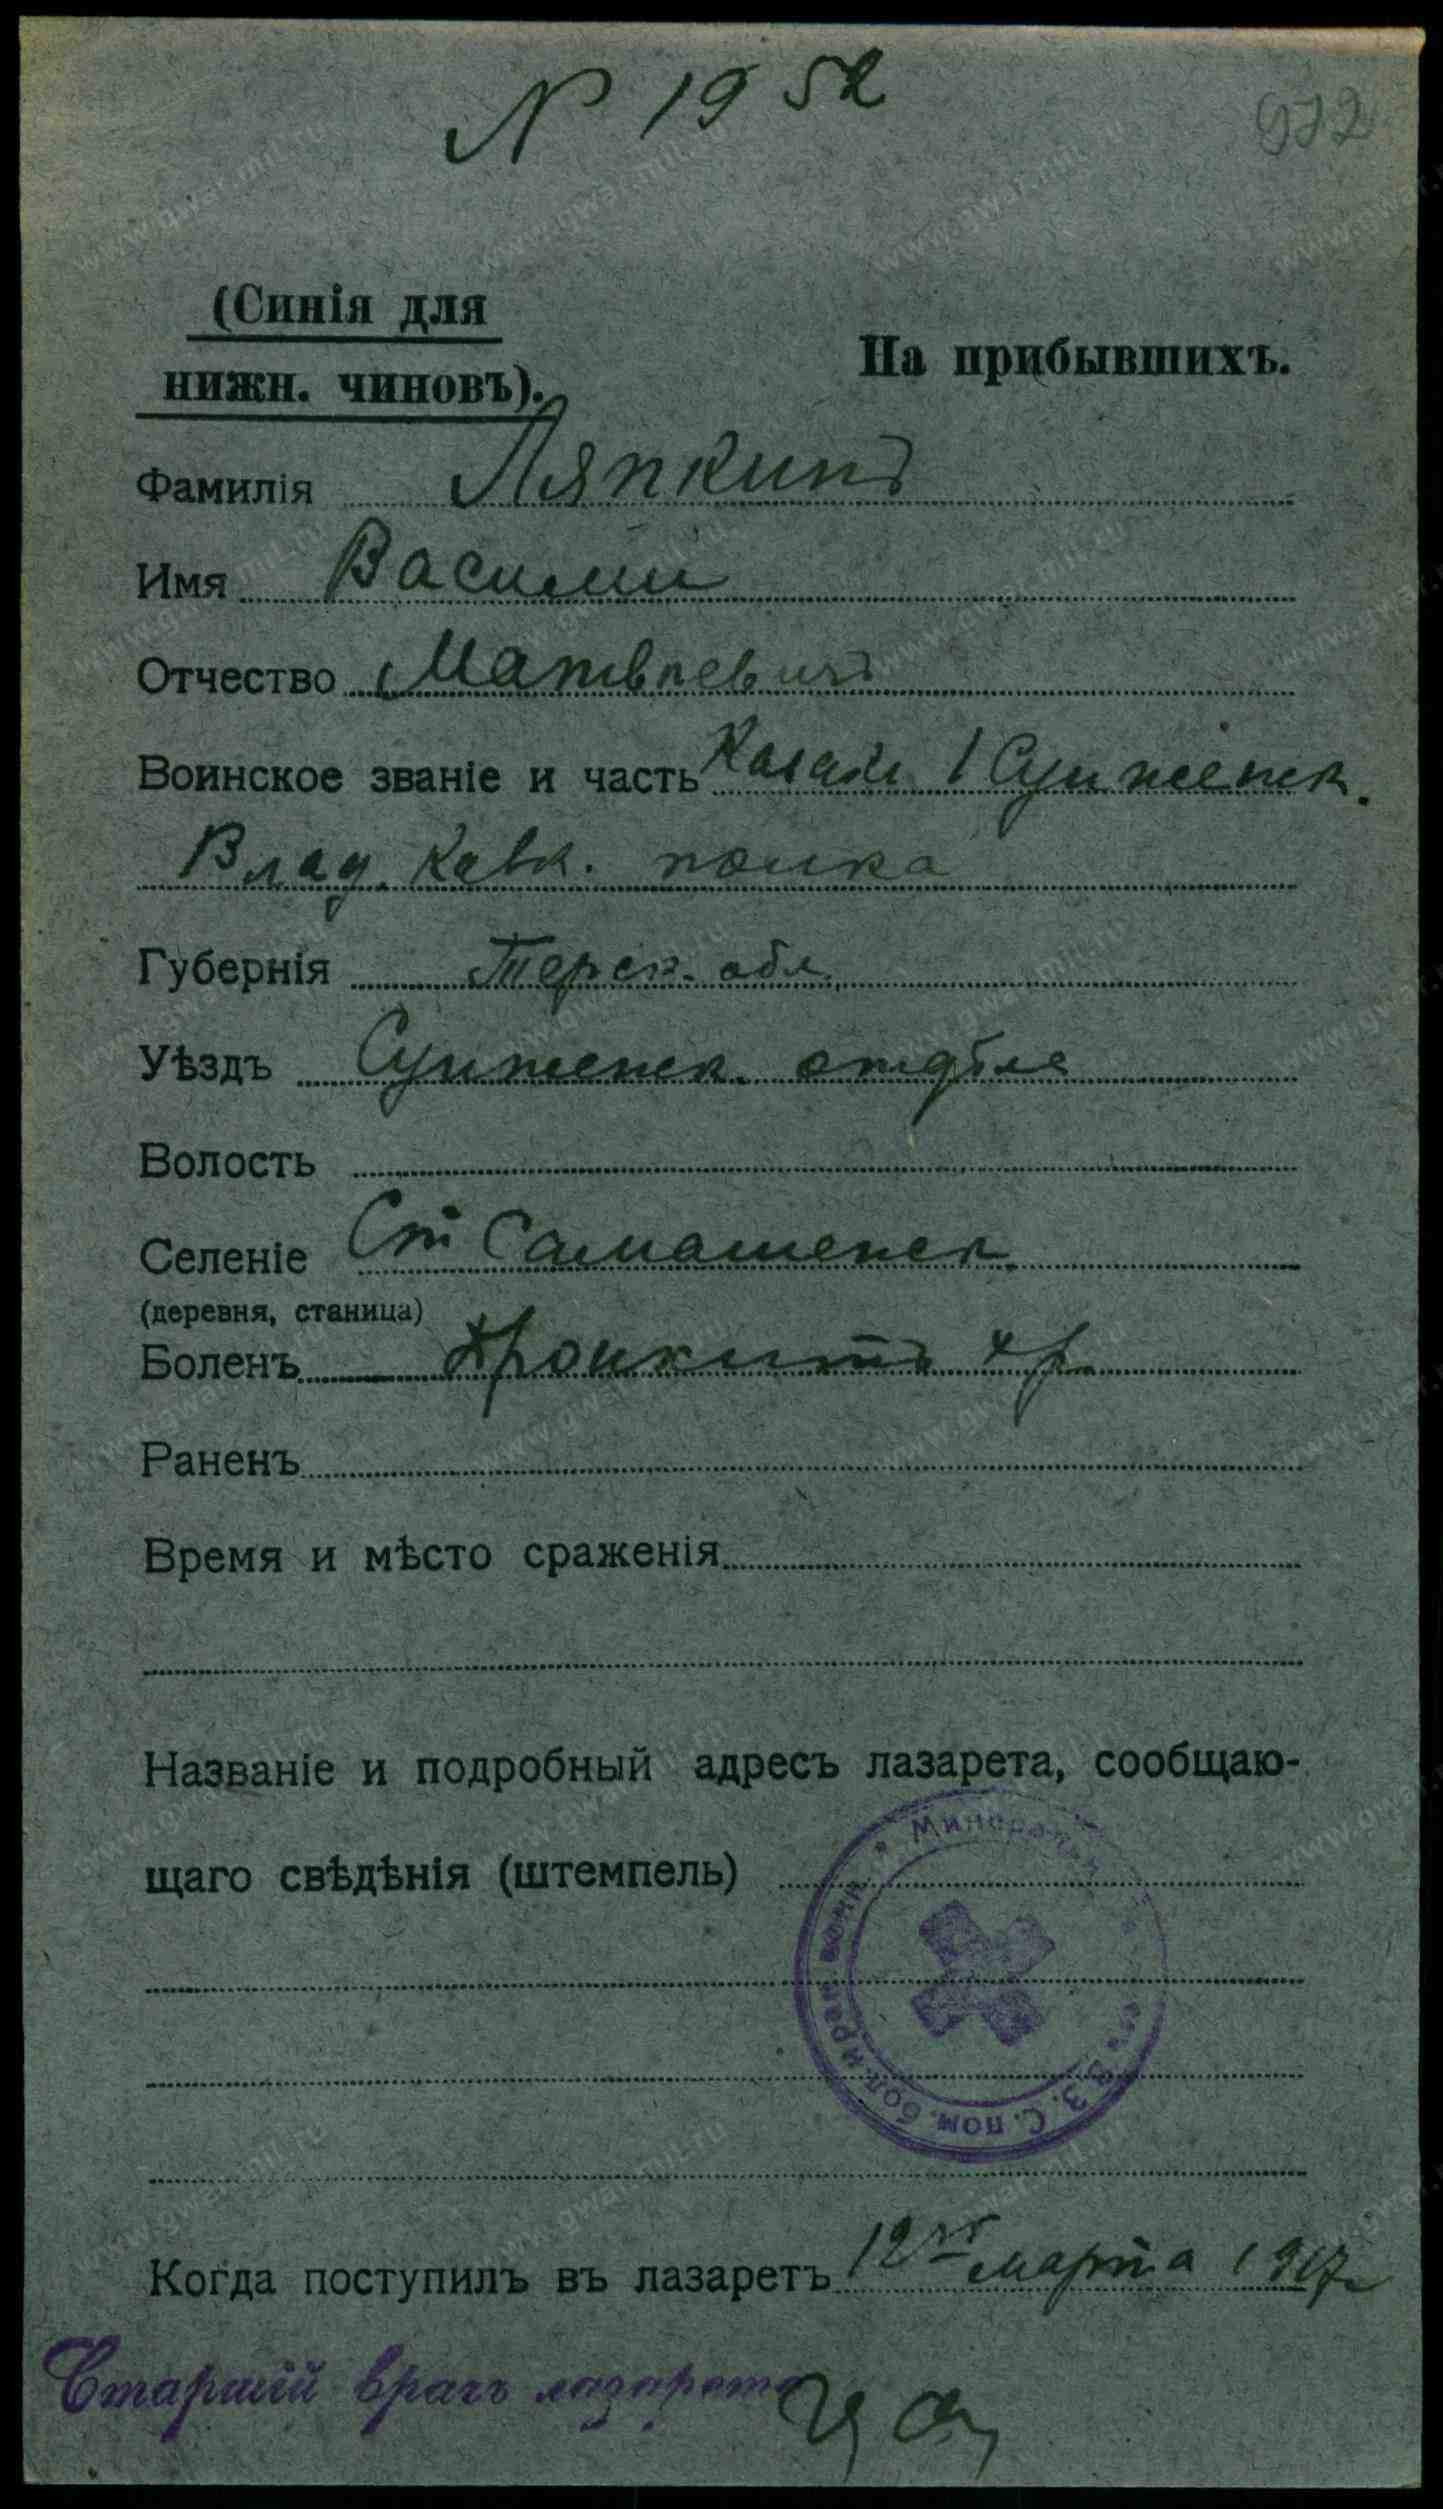 N 1952
972
(Синія для
нижн. чиновъ).
На прибывшихъ.
Фамилія Ляпкинъ
Имя Василий
Отчество Матвѣевичъ
Воинское званіе и часть Казакъ 1 Сунженск.
Влад. Кавк. полка
Губернія Терск. обл.
Уѣздъ Сунженск. отдѣла
Волость
Селеніе Ст Самашенск
(деревня, станица)
Боленъ Бронхитъ хр.
Раненъ
Время и мѣсто сраженія
Названіе и подробный адресъ лазарета, сообщаю-
щаго свѣдѣнія (штемпель)
В. З. С. пом. бол. и ран. воин.
Когда поступилъ въ лазаретъ 12го марта 1917г
Старшій врачъ лазарета
www.gwar.mil.ru